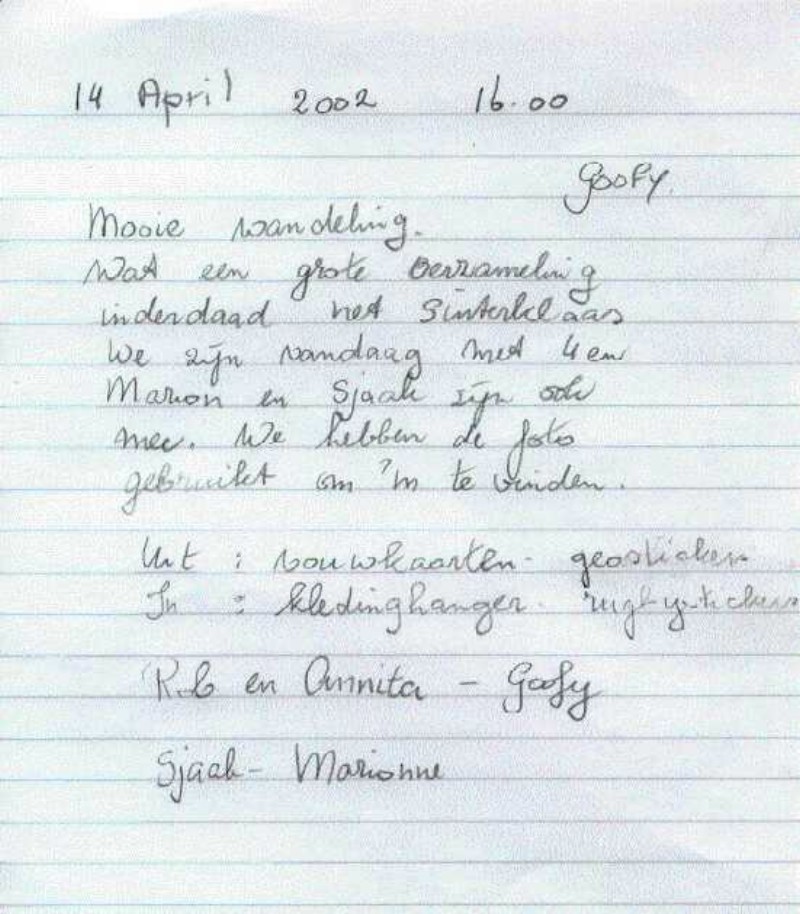 14 April 2002 16.00
Goofy.
Mooie wandeling.
Wat een grote verzameling
inderdaad net Sinterklaas
We zijn vandaag met 4 en
Marion en Sjaak zijn ook
mee. We hebben de foto
gebruikt om 'm te vinden.
Uit : vouwkaarten - geostickers
In : kledinghanger - rugbystickers
Rob en Annita - Goofy
Sjaak - Marionne